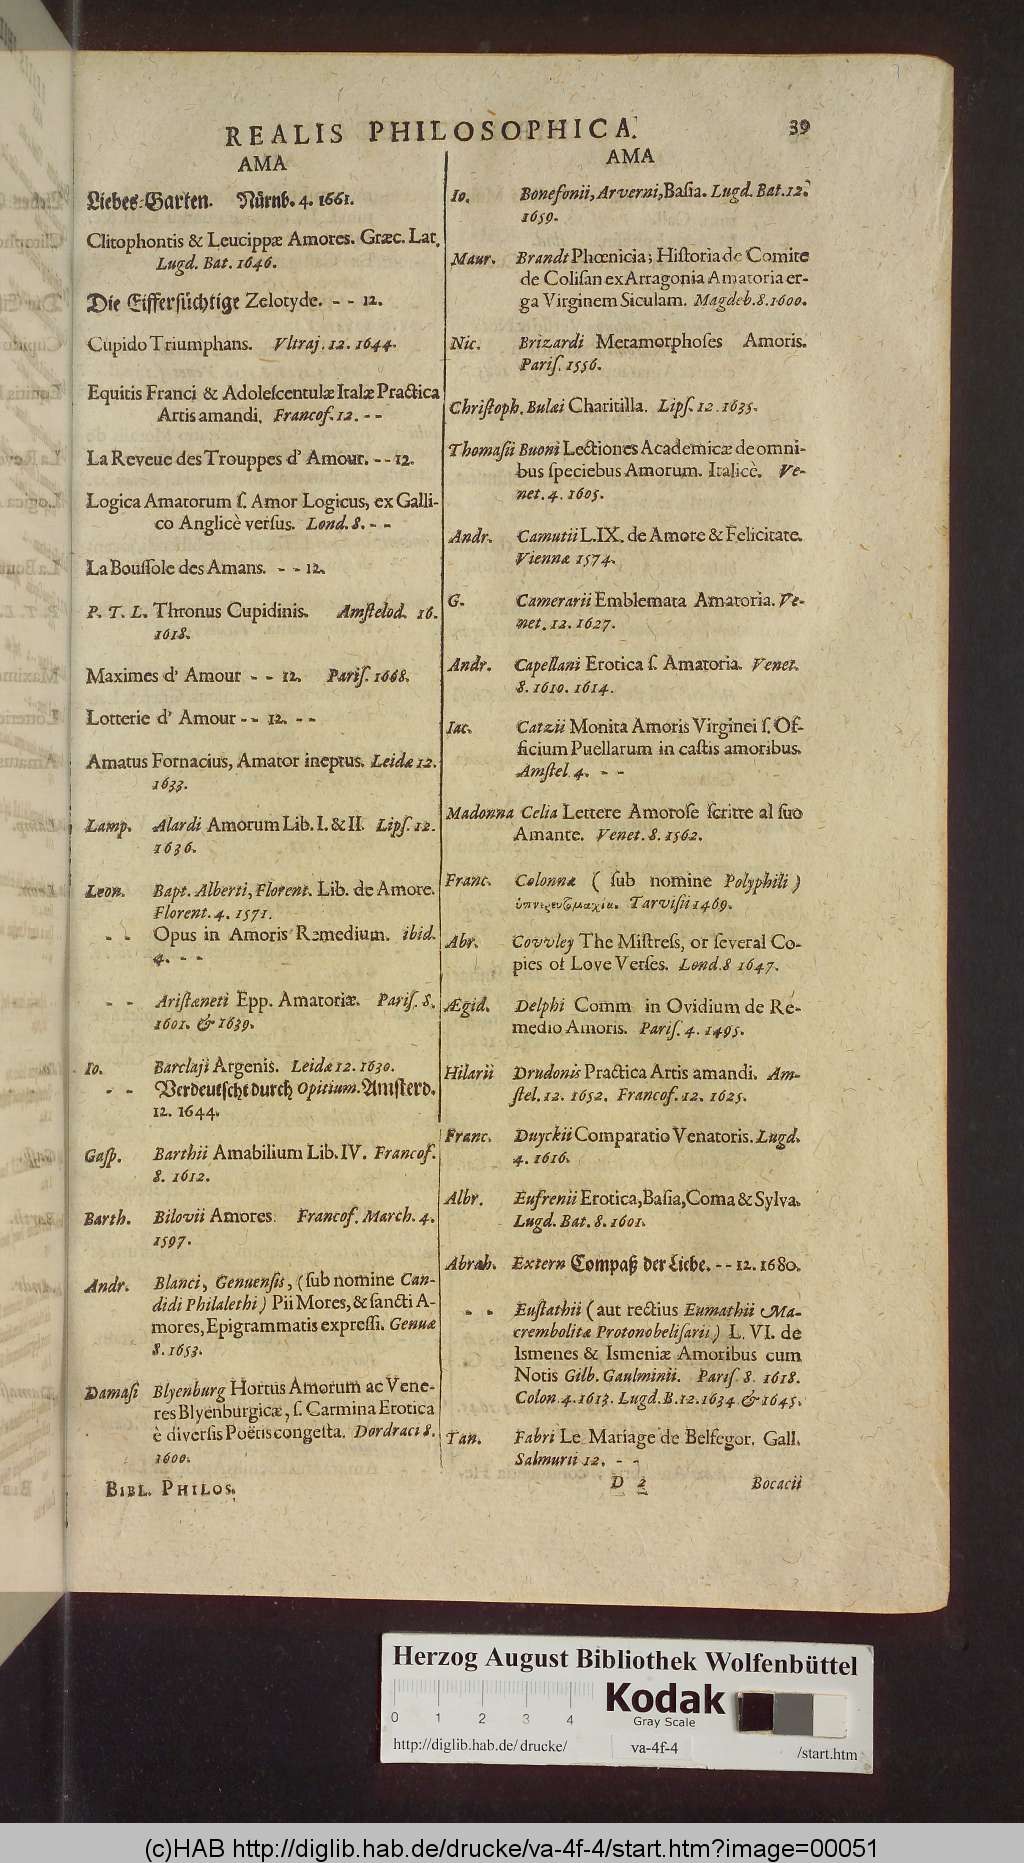 REALIS PHILOSOPHICA. 39
AMA
Liebes-Garten. Nürnb. 4. 1661.
Clitophontis & Leucippæ Amores. Græc. Lat.
Lugd. Bat. 1646.
Die Eiffersüchtige Zelotyde. - - 12.
Cupido Triumphans. Vltraj. 12. 1644.
Equitis Franci & Adoleſcentulæ Italæ Practica
Artis amandi. Francof. 12. - -
La Reveue des Trouppes d' Amour. - - 12.
Logica Amatorum ſ. Amor Logicus, ex Galli-
co Anglicè verſus. Lond. 8. - -
La Bouſſole des Amans. - - 12.
P. T. L. Thronus Cupidinis. Amſtelod. 16.
1618.
Maximes d' Amour - - 12. Pariſ. 1668.
Lotterie d' Amour - - 12. - -
Amatus Fornacius, Amator ineptus. Leidæ 12.
1633.
Lamp. Alardi Amorum Lib. I. & II. Lipſ. 12.
1636.
Leon. Bapt. Alberti, Florent. Lib. de Amore.
Florent. 4. 1571.
- - Opus in Amoris Remedium. ibid.
4. - -
- - Ariſtæneti Epp. Amatoriæ. Pariſ. 8.
1601. & 1639.
Io. Barclaji Argenis. Leidæ 12. 1630.
- - Verdeutſcht durch Opitium. Amſterd.
12. 1644.
Gaſp. Barthii Amabilium Lib. IV. Francof.
8. 1612.
Barth. Bilovii Amores. Francof. March. 4.
1597.
Andr. Blanci, Genuenſis, (ſub nomine Can-
didi Philalethi) Pii Mores, & ſancti A-
mores, Epigrammatis expreſſi. Genuæ
8. 1653.
Damaſi Blyenburg Hortus Amorum ac Vene-
res Blyenburgicæ, ſ. Carmina Erotica
è diverſis Poëtis congeſta. Dordraci 8.
1600.
BIBL. PHILOS.
AMA
Io. Bonefonii, Arverni, Baſia. Lugd. Bat. 12.
1659.
Maur. Brandt Phœnicia; Hiſtoria de Comite
de Coliſan ex Arragonia Amatoria er-
ga Virginem Siculam. Magdeb. 8. 1600.
Nic. Brizardi Metamorphoſes Amoris.
Pariſ. 1556.
Chriſtoph. Bulæi Charitilla. Lipſ. 12. 1635.
Thomaſii Buoni Lectiones Academicæ de omni-
bus ſpeciebus Amorum. Italicè. Ve-
net. 4. 1605.
Andr. Camutii L. IX. de Amore & Felicitate.
Viennæ 1574.
G. Camerarii Emblemata Amatoria. Ve-
net. 12. 1627.
Andr. Capellani Erotica ſ. Amatoria. Venet.
8. 1610. 1614.
Iac. Catzii Monita Amoris Virginei ſ. Of-
ficium Puellarum in caſtis amoribus.
Amſtel. 4. - -
Madonna Celia Lettere Amoroſe ſcritte al ſuo
Amante. Venet. 8. 1562.
Franc. Colonnæ (ſub nomine Polyphili)
Tarviſii 1469.
Abr. Covvley The Miſtreſs, or ſeveral Co-
pies of Love Verſes. Lond. 8 1647.
Ægid. Delphi Comm in Ovidium de Re-
medio Amoris. Pariſ. 4. 1495.
Hilarii Drudonis Practica Artis amandi. Am-
ſtel. 12. 1652. Francof. 12. 1625.
Franc. Duyckii Comparatio Venatoris. Lugd.
4. 1616.
Albr. Eufrenii Erotica, Baſia, Coma & Sylva.
Lugd. Bat. 8. 1601.
Abrah. Extern Compaß der Liebe. - - 12. 1680.
- - Euſtathii (aut rectius Eumathii Ma-
crembolitæ Protonobeliſarii) L. VI. de
Ismenes & Ismeniæ Amoribus cum
Notis Gilb. Gaulminii. Pariſ. 8. 1618.
Colon. 4. 1613. Lugd. B. 12. 1634 & 1645.
Tan. Fabri Le Mariage de Belfegor. Gall.
Salmurii 12. - -
D 2 Bocacii
Herzog August Bibliothek Wolfenbüttel
Kodak
Gray Scale
0 1 2 3 4
http://diglib.hab.de/drucke/ va-4f-4 /start.htm
(c)HAB http://diglib.hab.de/drucke/va-4f-4/start.htm?image=00051